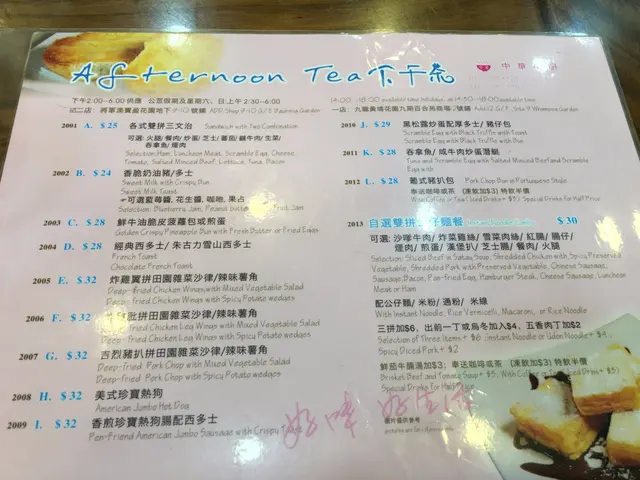 Afternoon Tea 下午茶
下午2:00-6:00供應 公眾假期及星期六、日:上午 2:30-6:00
2001 A. $25 各式雙拼三文治 Sandwich with Two Combination
可選: 火腿/餐肉/炒蛋/芝士/蕃茄/鹹牛肉/生菜/
吞拿魚/煙肉
Selection:Ham, Luncheon Meat, Scramble Egg, Cheese,
Tomato, Salted Minced Beef, Lettuce, Tuna, Bacon
2002 B. $24 香脆奶油豬/多士
Sweet Milk with Crispy Bun
Sweet Milk Toast
可選藍莓醬, 花生醬, 咖吔, 果占
Selection: Blueberry Jam, Peanut Jam
2003 C. $28 鮮牛油脆皮菠蘿包或煎蛋
Golden Crispy Pineapple Bun with Fresh Butter or Fried Eggs
2004 D. $28 經典西多士/朱古力雪山西多士
French Toast
Chocolate French Toast
2005 E. $32 炸雞翼拼田園雜菜沙律/辣味薯角
Deep-fried Chicken Wings with Mixed Vegetable Salad
Deep-fried Chicken Wings with Spicy Potato wedges
2006 F. $32 拼田園雜菜沙律/辣味薯角
Deep-fried Chicken Leg Wings with Mixed Vegetable Salad
Deep-fried Chicken Leg Wings with Spicy Potato wedges
2007 G. $32 吉烈豬扒拼田園雜菜沙律/辣味薯角
Deep-fried Pork Chop with Mixed Vegetable Salad
Deep-fried Pork Chop with Spicy Potato wedges
2008 H. $32 美式珍寶熱狗
American Jumbo Hot Dog
2009 I. $32 香煎珍寶熱狗腸配西多士
Pan-Fried American Jumbo Sausage with Crispy
2010 J. $29 黑松露炒蛋配厚多士/豬仔包
Scramble Egg with Black Truffle with Toast
Scramble Egg with Black Truffle with Bun
2011 K. $28 吞拿魚/咸牛肉炒蛋潛艇
Tuna and Scramble Egg with Salted Minced Beef and Scramble
Egg with
2012 L. $28 葡式豬扒包 Pork Chop Bun in Portuguese Style
奉送咖啡或茶 (凍飲加$3) 特飲半價
With Coffee or Tea (Cold Drinks +$3) Special Drinks for Half Price
2013 自選雙拼公仔麵餐 $30
可選: 沙嗲牛肉/炸菜雞絲/雪菜肉絲/紅腸/腸仔/
煙肉/煎蛋/漢堡扒/芝士腸/餐肉/火腿
Selection: Sliced Beef in Satay Soup, Shredded Chicken with Spicy Preserved
Vegetable, Shredded Pork with Preserved Vegetable, Cheese Sausage,
Sausage, Bacon, Pan-fried Egg, Hamburger Steak, Cheese Sausage, Luncheon
Meat or Ham
配公仔麵/米粉/通粉/米線
With Instant Noodle, Rice Vermicelli, Macaroni, or Rice Noodle
三拼加$6, 出前一丁或烏冬加入$4, 五香肉丁加$2
Selection of Three Items + $6, Instant Noodle or Udon Noodle + $4
Spicy Diced Pork + $2
鮮茄牛腩湯加$3: 奉送咖啡或茶 (凍飲加$3) 特飲半價
Brisket Beef and Tomato Soup + $3, With Coffee or
Special Drinks for Half Price
圖片僅供參考
好味 好生活